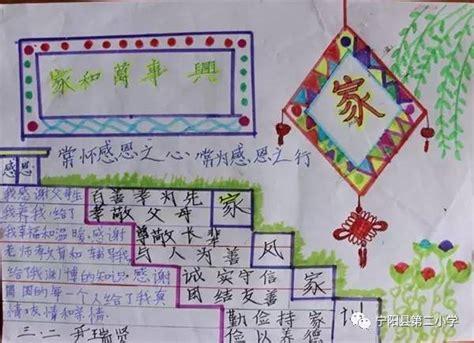 家和萬事興
家
常怀感恩之心，常为感恩之行
感恩
我感谢父母生
我养我，给了
我幸福和温暖，感谢
老师教育和辅导我
给我渊博的知识，感谢
周围的每一个人给了我真
情、友情和亲情。
三·二 尹瑞贤
百善孝为先
孝敬父母
尊敬长辈
与人为善
诚实守信
团结友善
勤俭持家
家
风
家
训
宁阳县第二小学